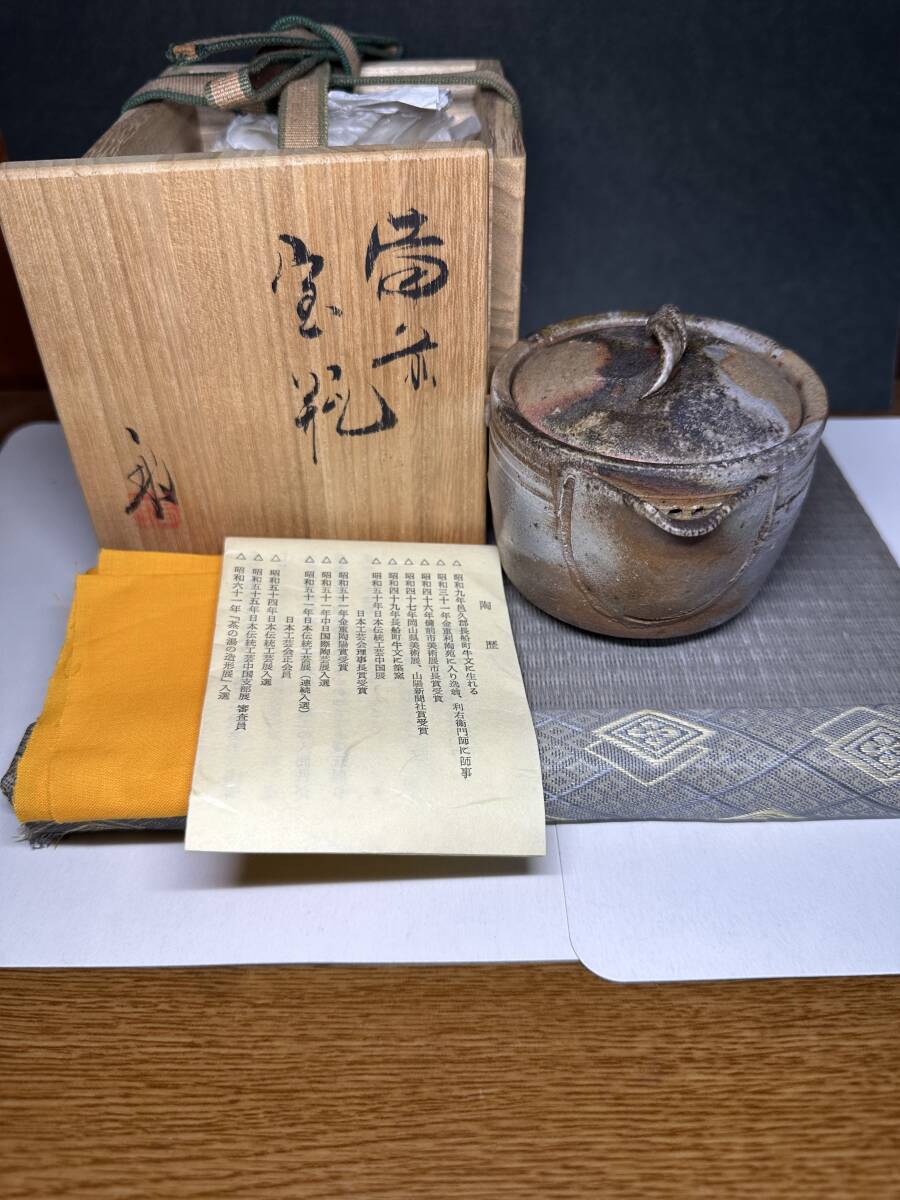 備前
宝瓶
陶歴
△ 昭和九年邑久郡長船町牛文に生れる
△ 昭和三十一年金重利陶苑に入り逸翁、利右衛門師に師事
△ 昭和四十六年備前市美術展市長賞受賞
△ 昭和四十七年岡山県美術展、山陽新聞社賞受賞
△ 昭和四十九年長船町牛文に築窯
△ 昭和五十年日本伝統工芸中国展
日本工芸会理事長賞受賞
△ 昭和五十一年金重陶陽賞受賞
△ 昭和五十一年中日国際陶芸展入選
△ 昭和五十一年日本伝統工芸展（連続入選）
日本工芸会正会員
△ 昭和五十四年日本伝統工芸展入選
△ 昭和五十五年日本伝統工芸中国支部展 審査員
△ 昭和六十一年「茶の湯の造形展」入選